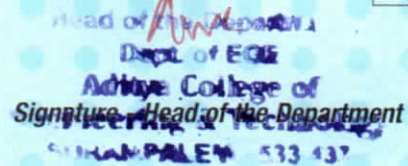 Head of the Department
Dept. of ECE
Aditya College of
Signature - Head of the Department
Engineering & Technology
SURAMPALEM - 533 437